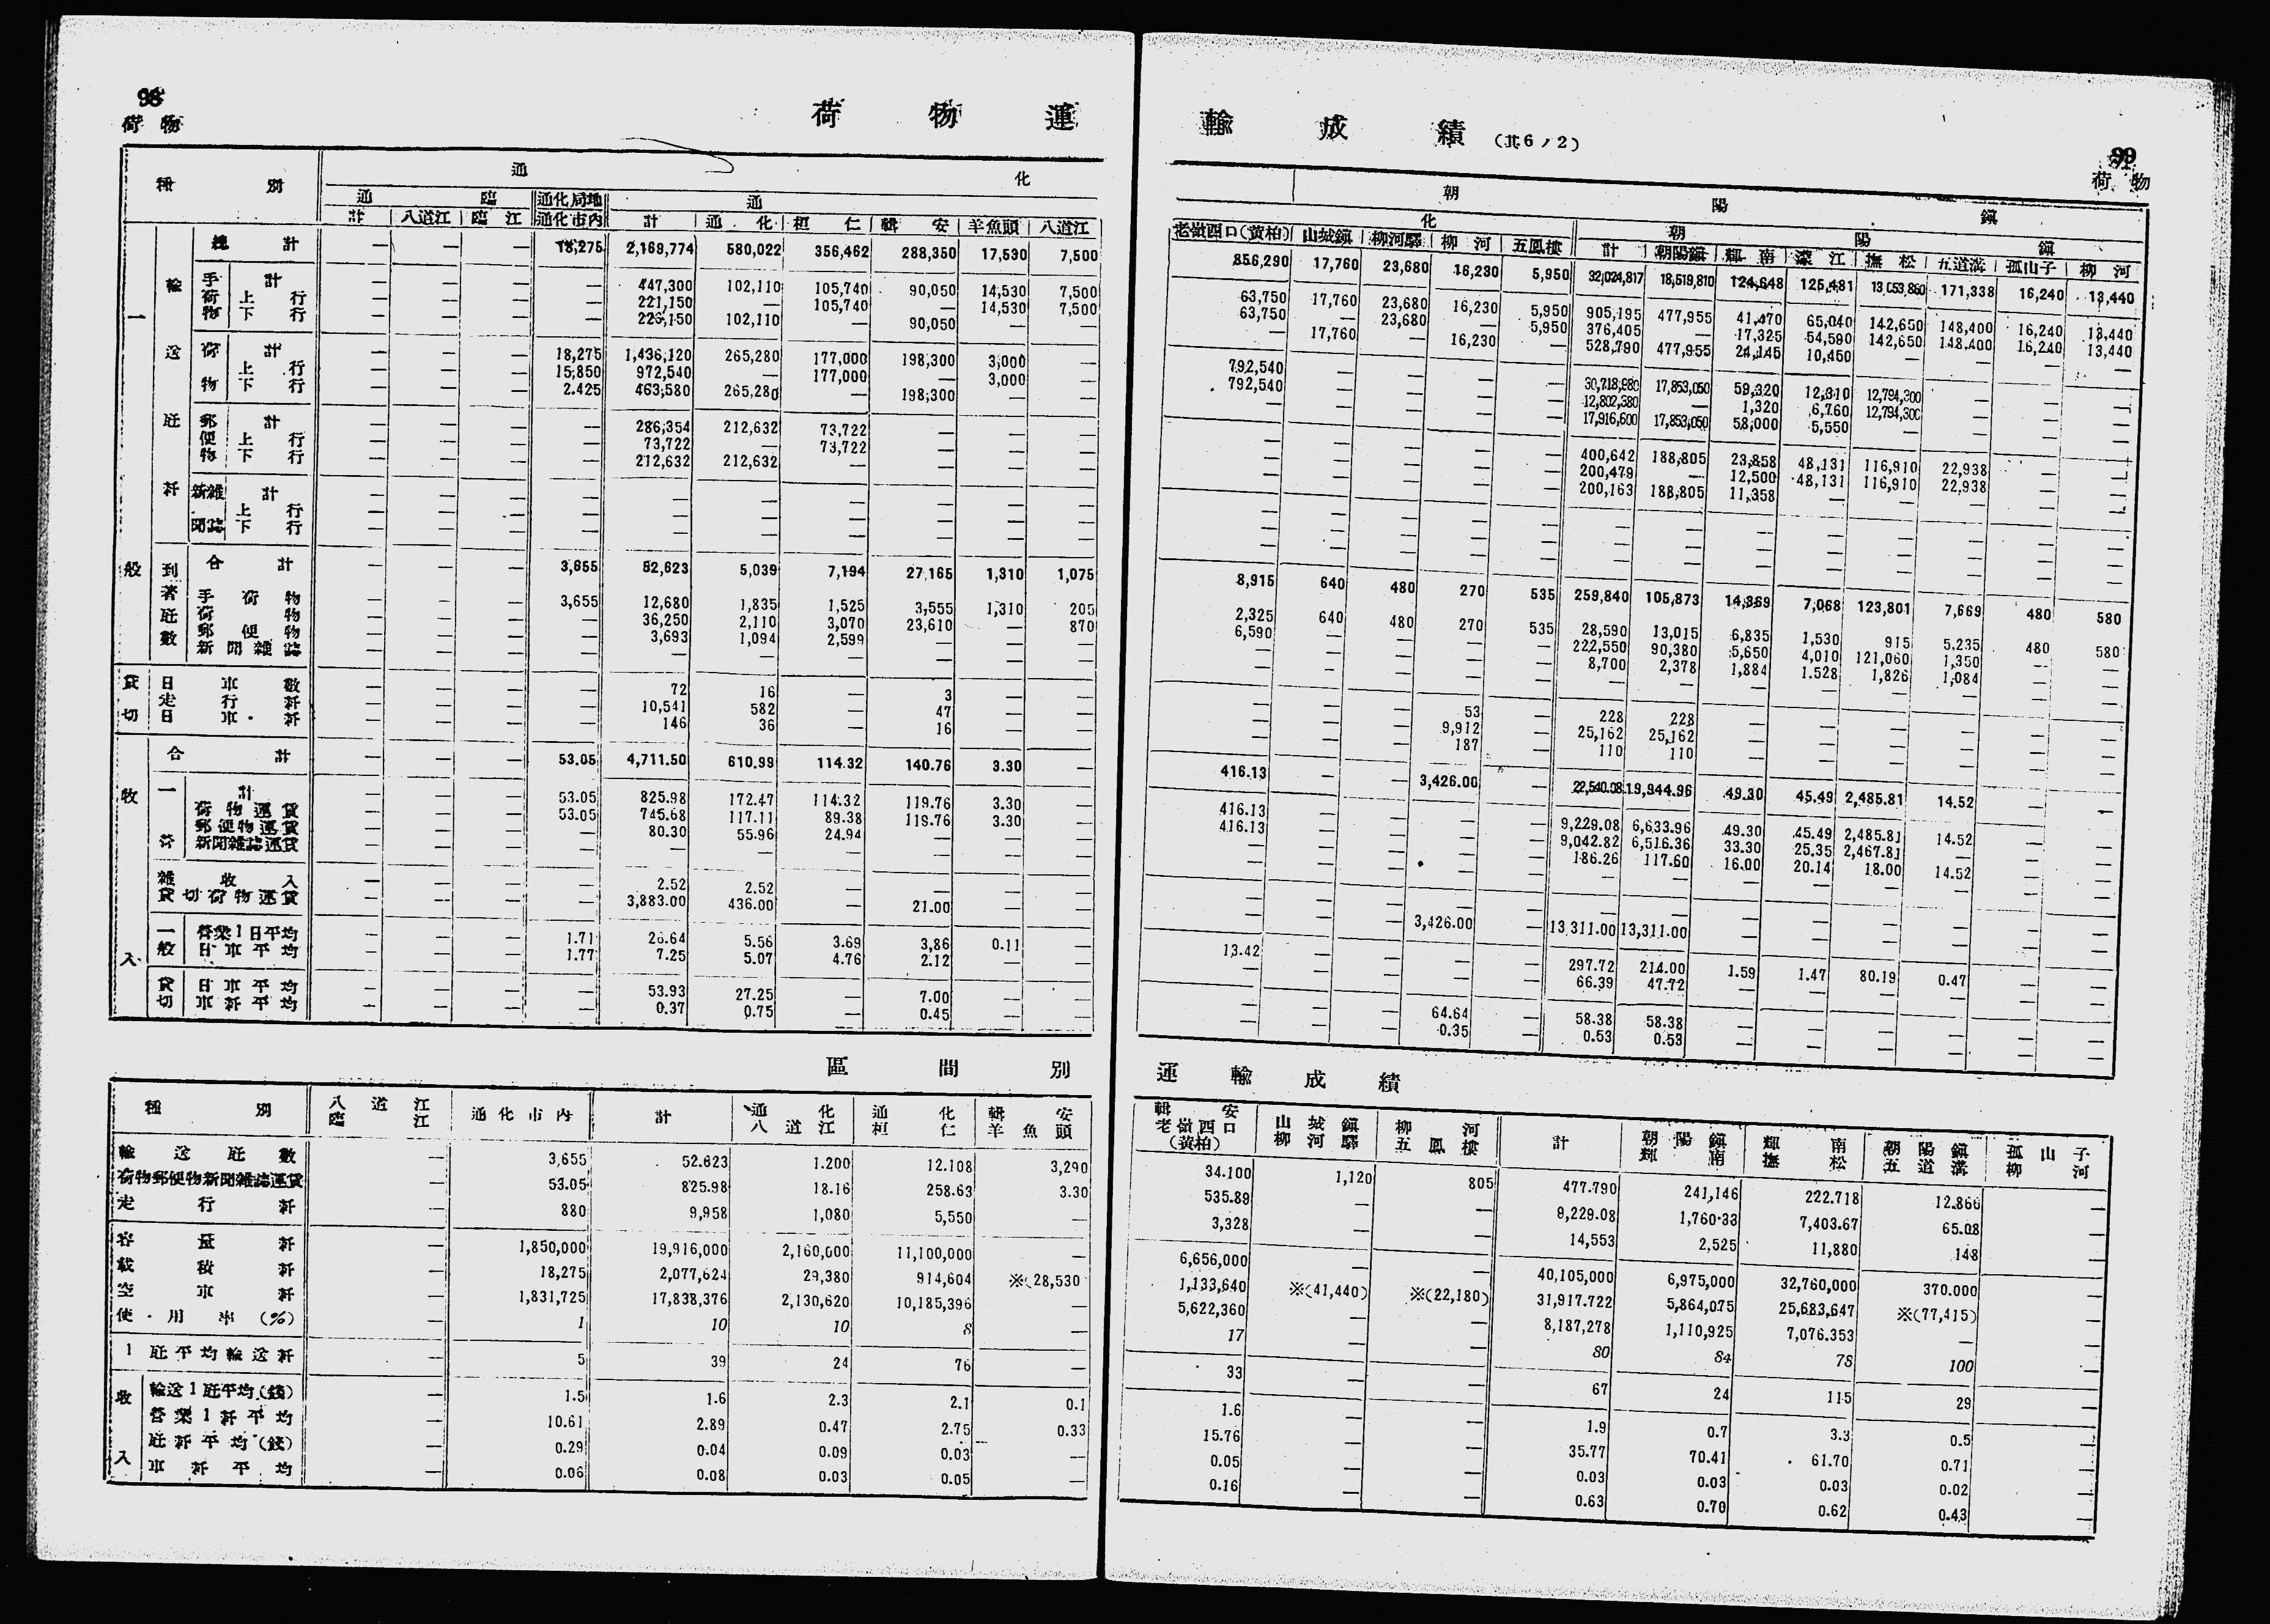 98
荷物
荷物運
種別 通化
通臨 通化局地 通
計 八道江 臨江 通化市内 計 通化 桓仁 輯安 羊魚頭 八道江
一般 輸送瓩粁 總計 — — — 18,275 2,169,774 580,022 356,462 288,350 17,530 7,500
手荷物 計 — — — — 447,300 102,110 105,740 90,050 14,530 7,500
上行 — — — — 221,150 — 105,740 — 14,530 7,500
下行 — — — — 226,150 102,110 — 90,050 — —
荷物 計 — — — 18,275 1,436,120 265,280 177,000 198,300 3,000 —
上行 — — — 15,850 972,540 — 177,000 — 3,000 —
下行 — — — 2.425 463,580 265,280 — 198,300 — —
郵便物 計 — — — — 286,354 212,632 73,722 — — —
上行 — — — — 73,722 — 73,722 — — —
下行 — — — — 212,632 212,632 — — — —
新聞雜誌 計 — — — — — — — — — —
上行 — — — — — — — — — —
下行 — — — — — — — — — —
到著瓩數 合計 — — — 3,655 52,623 5,039 7,194 27,165 1,310 1,075
手荷物 — — — 3,655 12,680 1,835 1,525 3,555 1,310 205
荷物 — — — — 36,250 2,110 3,070 23,610 — 870
郵便物 — — — — 3,693 1,094 2,599 — — —
新聞雜誌 — — — — — — — — — —
貸切 日車數 — — — — 72 16 — 3 — —
走行粁 — — — — 10,541 582 — 47 — —
日車粁 — — — — 146 36 — 16 — —
收入 合計 — — — 53.05 4,711.50 610.99 114.32 140.76 3.30 —
一啓 計 — — — 53.05 825.98 172.47 114.32 119.76 3.30 —
荷物運賃 — — — 53.05 745.68 117.11 89.38 119.76 3.30 —
郵便物運賃 — — — — 80.30 55.96 24.94 — — —
新聞雜誌運賃 — — — — — — — — — —
雜收入 — — — — 2.52 2.52 — — — —
貸切荷物運賃 — — — — 3,883.00 436.00 — 21.00 — —
一般 營業1日平均 — — — 1.71 26.64 5.56 3.69 3,86 0.11 —
日車平均 — — — 1.77 7.25 5.07 4.76 2.12 — —
貸切 日車平均 — — — — 53.93 27.25 — 7.00 — —
車粁平均 — — — — 0.37 0.75 — 0.45 — —
區間別
種別 八道江臨江 通化市内 計 通化八道江 通化桓仁 輯安羊魚頭
輸送瓩數 — 3,655 52.623 1.200 12.108 3,290
荷物郵便物新聞雜誌運賃 — 53.05 825.98 18.16 258.63 3.30
走行粁 — 880 9,958 1,080 5,550 —
容量粁 — 1,850,000 19,916,000 2,160,000 11,100,000 —
載積粁 — 18,275 2,077,624 29,380 914,604 ※(28,530
空車粁 — 1,831,725 17,838,376 2,130,620 10,185,396 —
使用率(%) — 1 10 10 8 —
1瓩平均輸送粁 — 5 39 24 76 —
收入 輸送1瓩平均(錢) — 1.5 1.6 2.3 2.1 0.1
營業1粁平均 — 10.61 2.89 0.47 2.75 0.33
瓩粁平均(錢) — 0.29 0.04 0.09 0.03 —
車粁平均 — 0.06 0.08 0.03 0.05 —
輸成績(其6ノ2)
99
荷物
朝陽鎮
化 朝陽鎮
老嶺西口(黃柏) 山城鎮 柳河驛 柳河 五鳳樓 計 朝陽鎮 輝南 濛江 撫松 五道溝 孤山子 柳河
856,290 17,760 23,680 16,230 5,950 32,024,817 18,519,810 124,648 125,481 13,053,860 171,338 16,240 13,440
63,750 17,760 23,680 16,230 5,950 905,195 477,955 41,470 65,040 142,650 148,400 16,240 13,440
63,750 — 23,680 — 5,950 376,405 — 17,325 54,590 142,650 148.400 16,240 13,440
— 17,760 — 16,230 — 528,790 477,955 24,145 10,450 — — — —
792,540 — — — — 30,718,980 17,853,050 59,320 12,310 12,794,300 — — —
792,540 — — — — 12,802,380 — 1,320 6,760 12,794,300 — — —
— — — — — 17,916,600 17,853,050 58,000 5,550 — — — —
— — — — — 400,642 188,805 23,858 48,131 116,910 22,938 — —
— — — — — 200,479 — 12,500 48,131 116,910 22,938 — —
— — — — — 200,163 188,805 11,358 — — — — —
— — — — — — — — — — — — —
— — — — — — — — — — — — —
— — — — — — — — — — — — —
8,915 640 480 270 535 259,840 105,873 14,369 7,068 123,801 7,669 480 580
2,325 640 480 270 535 28,590 13,015 6,835 1,530 915 5.235 480 580
6,590 — — — — 222,550 90,380 5,650 4,010 121,060 1,350 — —
— — — — — 8,700 2,378 1,884 1.528 1,826 1,084 — —
— — — — — — — — — — — — —
— — — 53 — 228 228 — — — — — —
— — — 9,912 — 25,162 25,162 — — — — — —
— — — 187 — 110 110 — — — — — —
416.13 — — 3,426.00 — 22,540.08 19,944.96 49.30 45.49 2,485.81 14.52 — —
416.13 — — — — 9,229.08 6,633.96 49.30 45.49 2,485.81 14.52 — —
416.13 — — — — 9,042.82 6,516.36 33.30 25.35 2,467.81 — — —
— — — — — 186.26 117.60 16.00 20.14 18.00 14.52 — —
— — — — — — — — — — — — —
— — — — — — — — — — — — —
— — — 3,426.00 — 13,311.00 13,311.00 — — — — — —
13.42 — — — — 297.72 214.00 1.59 1.47 80.19 0.47 — —
— — — — — 66.39 47.72 — — — — — —
— — — 64.64 — 58.38 58.38 — — — — — —
— — — 0.35 — 0.53 0.53 — — — — — —
運輸成績
輯安老嶺西口(黃柏) 山城鎮柳河驛 柳河五鳳樓 計 朝陽鎮輝南 輝南撫松 朝陽鎮五道溝 孤山子柳河
34.100 1,120 805 477.790 241,146 222.718 12.866 —
535.89 — — 9,229.08 1,760.33 7,403.67 65.08 —
3,328 — — 14,553 2,525 11,880 148 —
6,656,000 — — 40,105,000 6,975,000 32,760,000 370.000 —
1,133,640 ※(41,440) ※(22,180) 31,917.722 5,864,075 25,683,647 ※(77,415) —
5,622,360 — — 8,187,278 1,110,925 7,076.353 — —
17 — — 80 84 78 100 —
33 — — 67 24 115 29 —
1.6 — — 1.9 0.7 3.3 0.5 —
15.76 — — 35.77 70.41 61.70 0.71 —
0.05 — — 0.03 0.03 0.03 0.02 —
0.16 — — 0.63 0.70 0.62 0.43 —